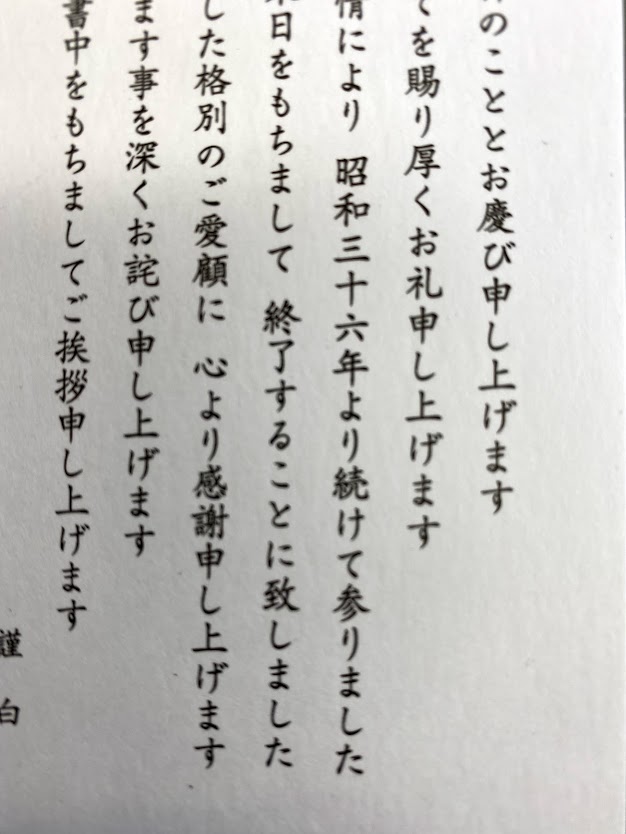 のこととお慶び申し上げます
てを賜り厚くお礼申し上げます
情により 昭和三十六年より続けて参りました
日をもちまして 終了することに致しました
した格別のご愛顧に 心より感謝申し上げます
ます事を深くお詫び申し上げます
書中をもちましてご挨拶申し上げます
謹白